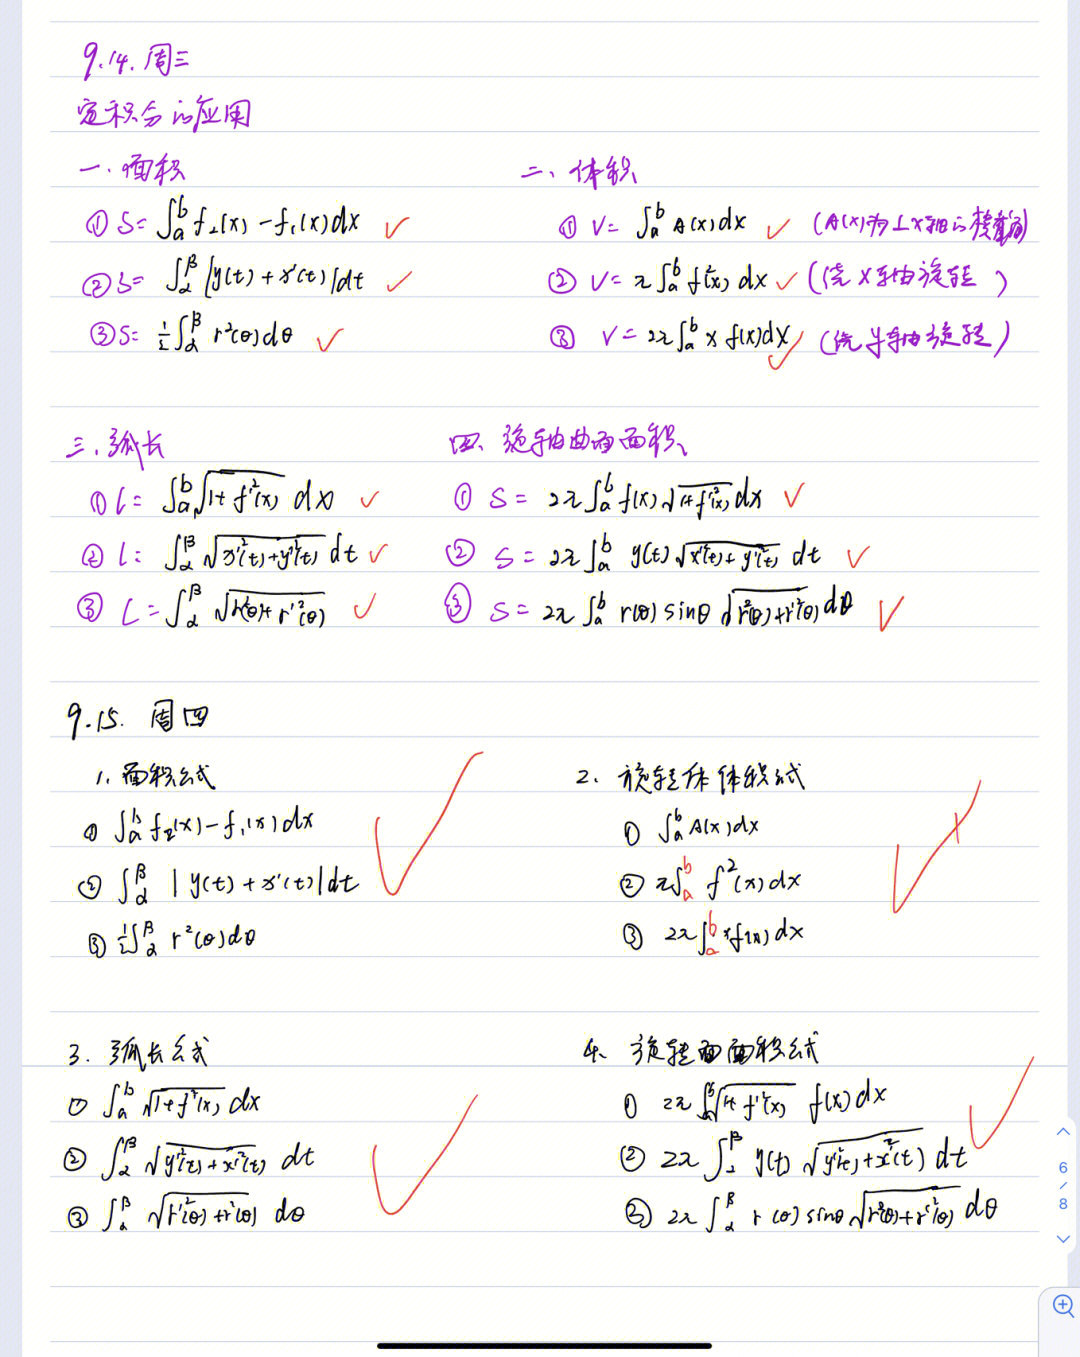 9.14.周三
定积分的应用
一.面积
① S= ∫_a^b f₂(x) - f₁(x)dx ✓
② S= ∫_α^β |y(t) + x'(t)|dt ✓
③ S= ½∫_α^β r²(θ)dθ ✓
二、体积
① V= ∫_a^b A(x)dx ✓ (A(x)为⊥x轴的横截面)
② V= π∫_a^b f²(x) dx ✓ (绕x轴旋转)
③ V= 2π∫_a^b x f(x)dx ✓ (绕y轴旋转)
三.弧长
① l= ∫_a^b √(1+f'²(x)) dx ✓
② l= ∫_α^β √(x'²(t)+y'²(t)) dt ✓
③ L= ∫_α^β √(r²(θ)+r'²(θ)) ✓
四、旋轴曲面面积
① S= 2π∫_a^b f(x) √(1+f'²(x)) dx ✓
② S= 2π∫_a^b y(t) √(x'²(t)+y'²(t)) dt ✓
③ S= 2π∫_a^b r(θ) sinθ √(r²(θ)+r'²(θ)) dθ ✓
9.15. 周四
1. 面积公式
① ∫_a^b f₂(x)-f₁(x)dx
② ∫_α^β |y(t) + x'(t)|dt
③ ½∫_α^β r²(θ)dθ
2. 旋转体体积公式
① ∫_a^b A(x)dx
② π∫_a^b f²(x)dx
③ 2π∫_a^b xf(x)dx
3. 弧长公式
① ∫_a^b √(1+f'²(x)) dx
② ∫_α^β √(y'²(t)+x'²(t)) dt
③ ∫_α^β √(r'²(θ)+r²(θ)) dθ
4. 旋转面面积公式
① 2π∫_a^b √(1+f'²(x)) f(x)dx
② 2π∫_α^β y(t) √(y'²(t)+x'²(t)) dt
③ 2π∫_α^β r(θ) sinθ √(r²(θ)+r'²(θ)) dθ
6
/
8